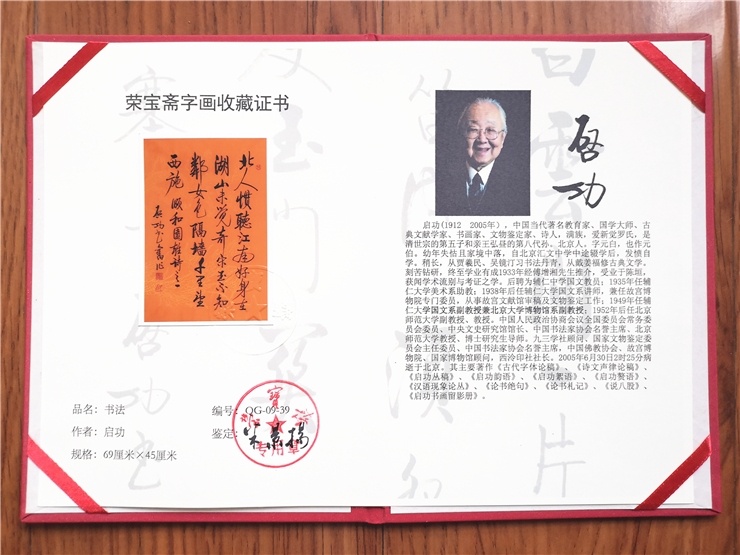 荣宝斋字画收藏证书
北人慣聽江南好身在
湖山未覺奇宋玉不知
鄰女色隔墙千里望
西施 頤和園雜詩之一
启功
品名：书法
作者：启功
规格：69厘米×45厘米
编号：QG-09-39
鉴定：米景扬
寶
专用章
启功
启功(1912 2005年)，中国当代著名教育家、国学大师、古
典文献学家、书画家、文物鉴定家、诗人，满族，爱新觉罗氏，是
清世宗的第五子和亲王弘昼的第八代孙。北京人。字元白，也作元
伯。幼年失怙且家境中落，自北京汇文中学中途辍学后，发愤自
学。稍长，从贾羲民、吴镜汀习书法丹青，从戴姜福修古典文学。
刻苦钻研，终至学业有成1933年经傅增湘先生推介，受业于陈垣，
获闻学术流别与考证之学。后聘为辅仁中学国文教员；1935年任辅
仁大学美术系助教；1938年后任辅仁大学国文系讲师，兼任故宫博
物院专门委员，从事故宫文献馆审稿及文物鉴定工作；1949年任辅
仁大学国文系副教授兼北京大学博物馆系副教授；1952年后任北京
师范大学副教授、教授。中国人民政治协商会议全国委员会常务委
员会委员、中央文史研究馆馆长、中国书法家协会名誉主席、北京
师范大学教授、博士研究生导师。九三学社顾问、国家文物鉴定委
员会主任委员、中国书法家协会名誉主席，中国佛教协会、故宫博
物院、国家博物馆顾问，西泠印社社长。2005年6月30日2时25分病
逝于北京。其主要著作《古代字体论稿》、《诗文声律论稿》、
《启功丛稿》、《启功韵语》、《启功絮语》、《启功赘语》、
《汉语现象论丛》、《论书绝句》、《论书札记》、《说八股》、
《启功书画留影册》。